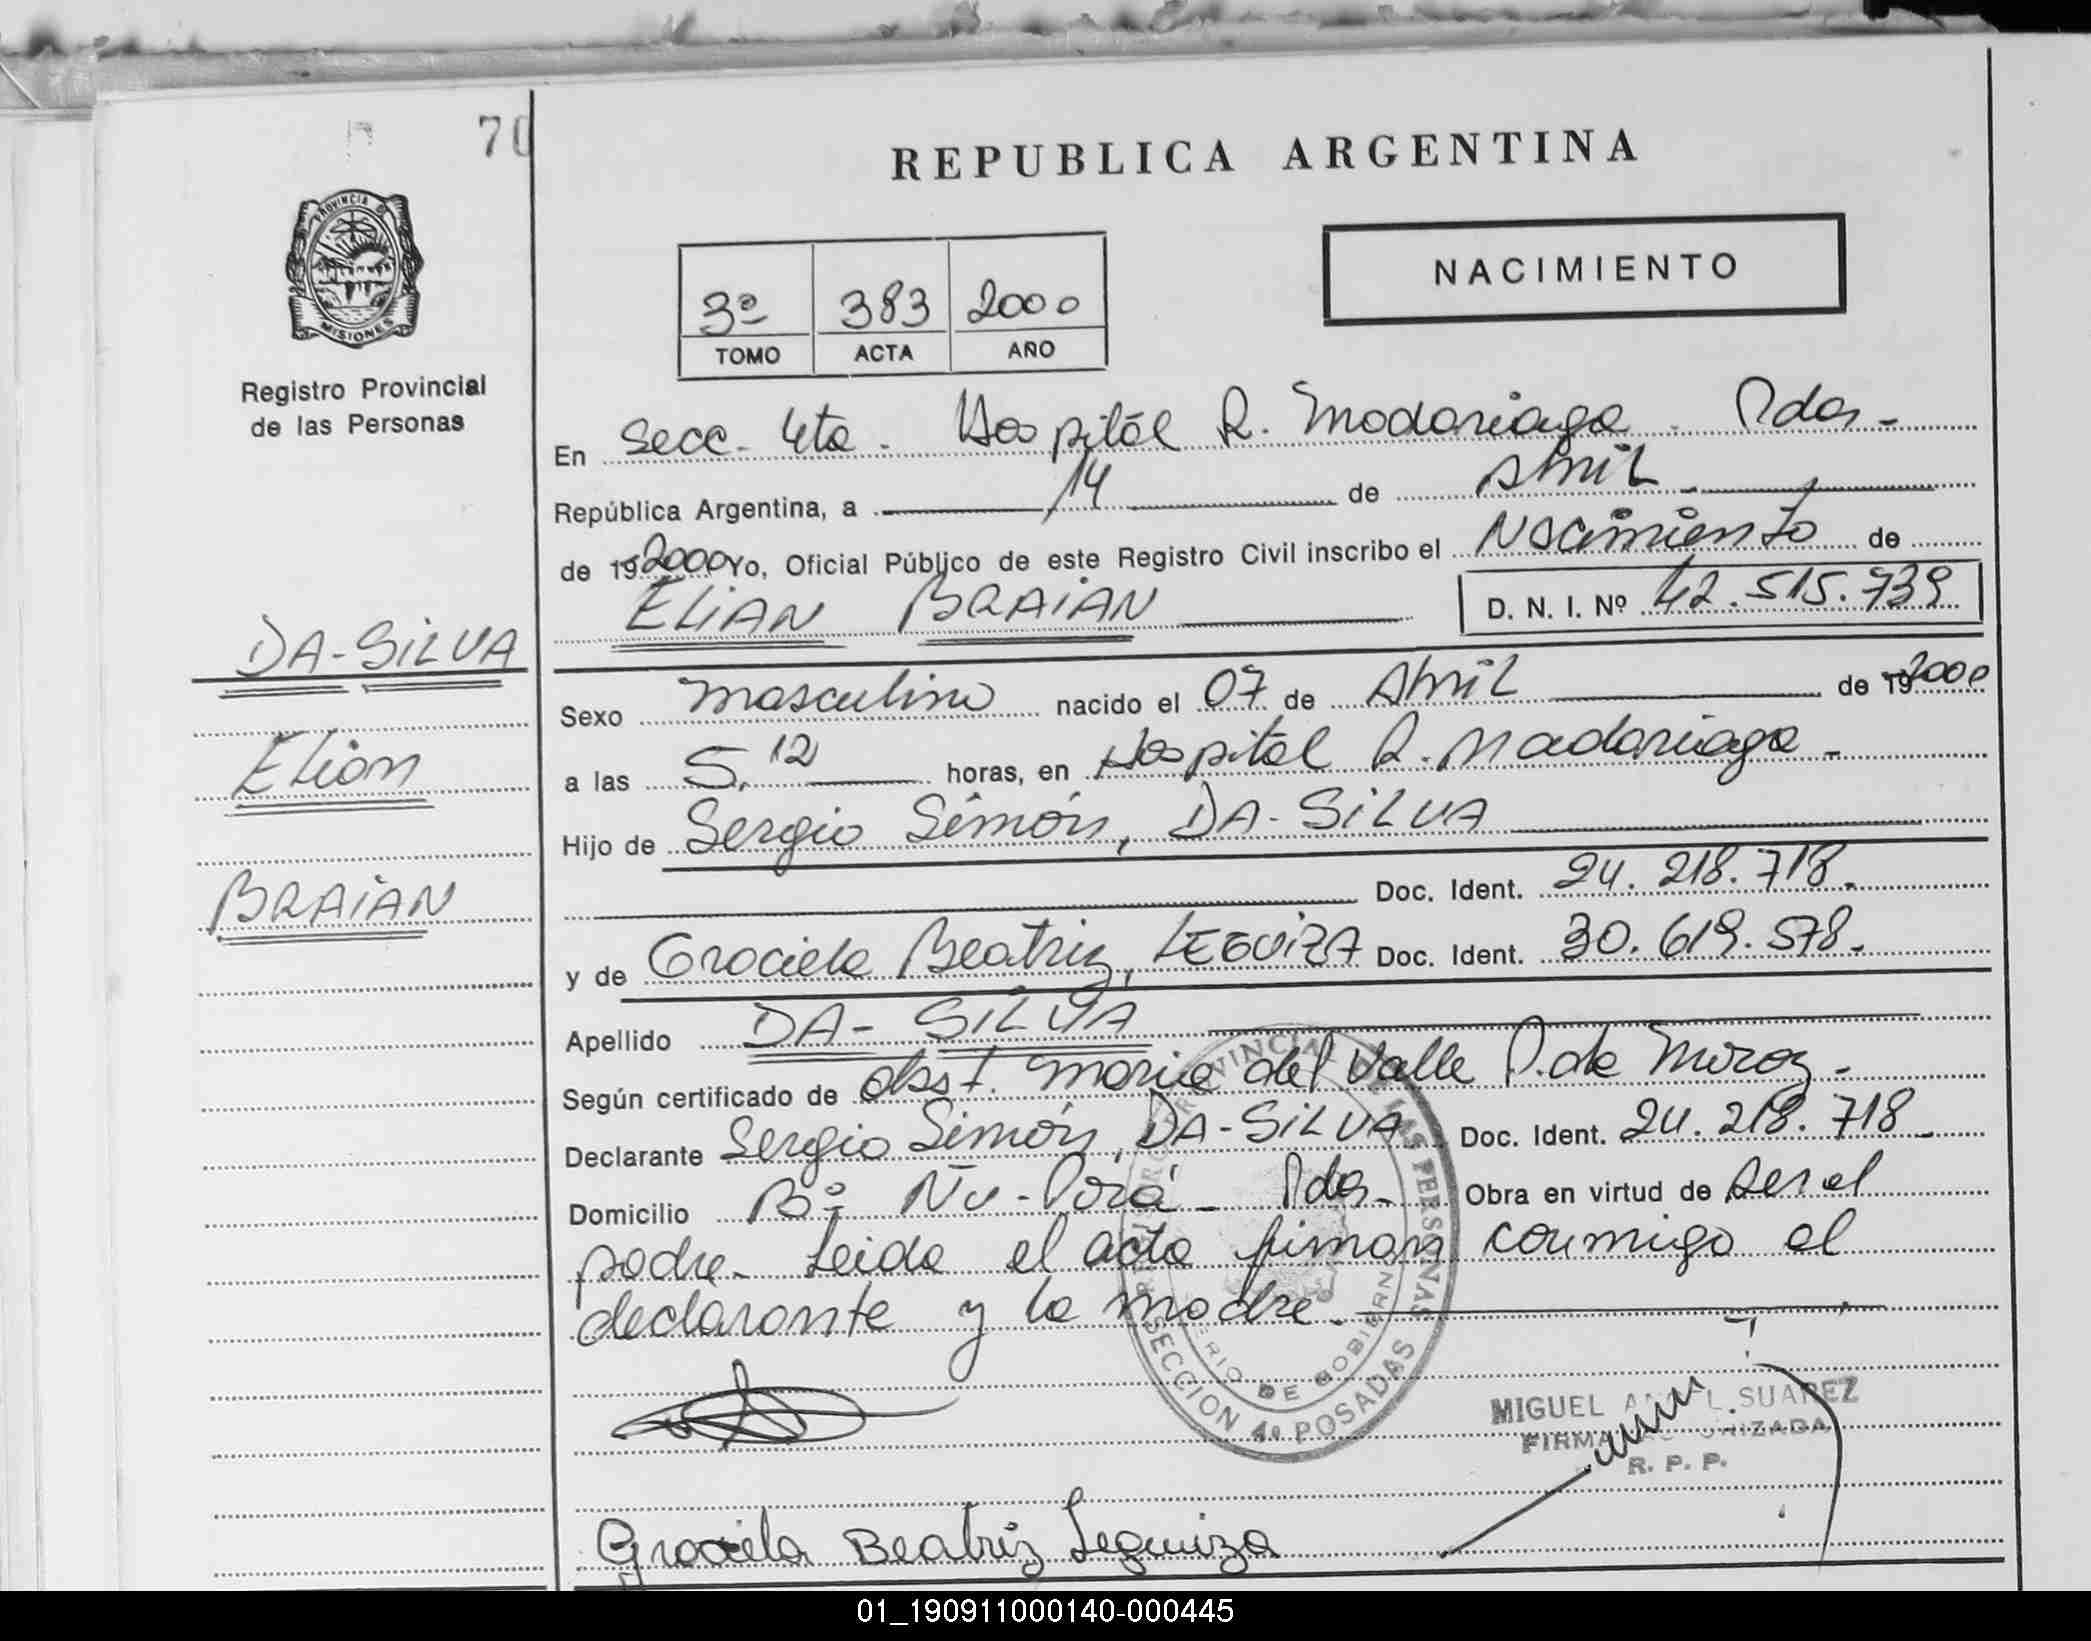 70
REPUBLICA ARGENTINA
PROVINCIA DE
MISIONES
Registro Provincial
de las Personas
NACIMIENTO
3º 383 2000
TOMO ACTA AÑO
En Secc. 4ta. Hospital R. Madariaga. Pdas.
República Argentina, a 14 de Abril
de 192000 Yo, Oficial Público de este Registro Civil inscribo el Nacimiento de
ELIAN BRAIAN D. N. I. Nº 42.515.739
DA-SILVA
Elian
BRAIAN
Sexo masculino nacido el 07 de Abril de 19 2000
a las 5,12 horas, en Hospital R. Madariaga.
Hijo de Sergio Simón, DA-SILVA
Doc. Ident. 24.218.718.
y de Graciela Beatriz, LEGUIZA Doc. Ident. 30.619.578.
Apellido DA-SILVA
Según certificado de obst. Maria del Valle P. de Miroz.
Declarante Sergio Simón, DA-SILVA Doc. Ident. 24.218.718
Domicilio Bº Ñu-Porá - Pdas. Obra en virtud de ser el
padre. Leida el acta firman conmigo el
declarante y la madre.
SECCION 4a POSADAS
MIGUEL ANGEL SUAREZ
FIRMA AUTORIZADA
R. P. P.
Graciela Beatriz Leguiza
01_190911000140-000445